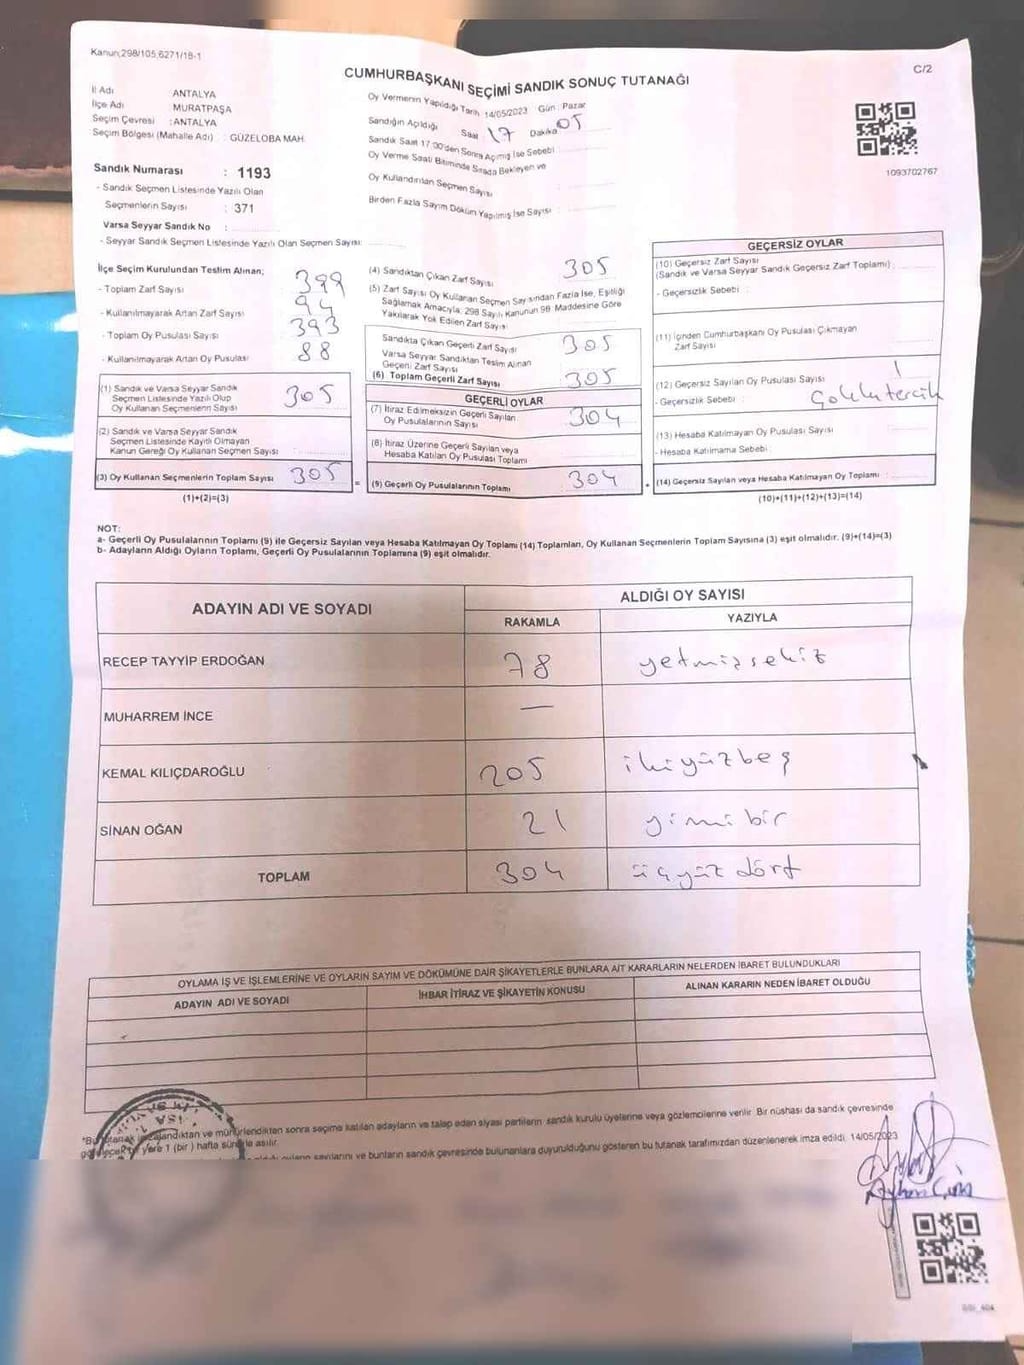 Kanun;298/105,6271/18-1
C/2
CUMHURBAŞKANI SEÇİMİ SANDIK SONUÇ TUTANAĞI
İl Adı ANTALYA
İlçe Adı MURATPAŞA
Seçim Çevresi : ANTALYA
Seçim Bölgesi (Mahalle Adı) : GÜZELOBA MAH.
Sandık Numarası : 1193
- Sandık Seçmen Listesinde Yazılı Olan
Seçmenlerin Sayısı : 371
Varsa Seyyar Sandık No :
- Seyyar Sandık Seçmen Listesinde Yazılı Olan Seçmen Sayısı:
Oy Vermenin Yapıldığı Tarih 14/05/2023 Gün : Pazar
Sandığın Açıldığı Saat 17 Dakika 05
Sandık Saat 17:00'den Sonra Açılmış İse Sebebi
Oy Verme Saati Bitiminde Sırada Bekleyen ve
Oy Kullandırılan Seçmen Sayısı
Birden Fazla Sayım Döküm Yapılmış İse Sayısı :
1093702767
İlçe Seçim Kurulundan Teslim Alınan;
- Toplam Zarf Sayısı 399
- Kullanılmayarak Artan Zarf Sayısı 94
- Toplam Oy Pusulası Sayısı 393
- Kullanılmayarak Artan Oy Pusulası 88
(1) Sandık ve Varsa Seyyar Sandık
Seçmen Listesinde Yazılı Olup
Oy Kullanan Seçmenlerin Sayısı 305
(2) Sandık ve Varsa Seyyar Sandık
Seçmen Listesinde Kayıtlı Olmayan
Kanun Gereği Oy Kullanan Seçmen Sayısı :
(3) Oy Kullanan Seçmenlerin Toplam Sayısı 305
(1)+(2)=(3)
(4) Sandıktan Çıkan Zarf Sayısı 305
(5) Zarf Sayısı Oy Kullanan Seçmen Sayısından Fazla İse, Eşitliği
Sağlamak Amacıyla; 298 Sayılı Kanunun 98. Maddesine Göre
Yakılarak Yok Edilen Zarf Sayısı :
Sandıkta Çıkan Geçerli Zarf Sayısı 305
Varsa Seyyar Sandıktan Teslim Alınan
Geçerli Zarf Sayısı
(6) Toplam Geçerli Zarf Sayısı 305
GEÇERLİ OYLAR
(7) İtiraz Edilmeksizin Geçerli Sayılan
Oy Pusulalarının Sayısı 304
(8) İtiraz Üzerine Geçerli Sayılan veya
Hesaba Katılan Oy Pusulası Toplamı
(9) Geçerli Oy Pusulalarının Toplamı 304
=
+
GEÇERSİZ OYLAR
(10) Geçersiz Zarf Sayısı
(Sandık ve Varsa Seyyar Sandık Geçersiz Zarf Toplamı) :
- Geçersizlik Sebebi :
(11) İçinden Cumhurbaşkanı Oy Pusulası Çıkmayan
Zarf Sayısı
(12) Geçersiz Sayılan Oy Pusulası Sayısı 1
- Geçersizlik Sebebi : Çoklu tercik
(13) Hesaba Katılmayan Oy Pusulası Sayısı
- Hesaba Katılmama Sebebi
(14) Geçersiz Sayılan veya Hesaba Katılmayan Oy Toplamı :
(10)+(11)+(12)+(13)=(14)
NOT:
a- Geçerli Oy Pusulalarının Toplamı (9) ile Geçersiz Sayılan veya Hesaba Katılmayan Oy Toplamı (14) Toplamları, Oy Kullanan Seçmenlerin Toplam Sayısına (3) eşit olmalıdır. (9)+(14)=(3)
b- Adayların Aldığı Oyların Toplamı, Geçerli Oy Pusulalarının Toplamına (9) eşit olmalıdır.
ADAYIN ADI VE SOYADI ALDIĞI OY SAYISI
RAKAMLA YAZIYLA
RECEP TAYYİP ERDOĞAN 78 yetmişsekiz
MUHARREM İNCE —
KEMAL KILIÇDAROĞLU 205 ikiyüzbeş
SİNAN OĞAN 21 yirmi bir
TOPLAM 304 üçyüz dört
OYLAMA İŞ VE İŞLEMLERİNE VE OYLARIN SAYIM VE DÖKÜMÜNE DAİR ŞİKAYETLERLE BUNLARA AİT KARARLARIN NELERDEN İBARET BULUNDUKLARI
ADAYIN ADI VE SOYADI İHBAR İTİRAZ VE ŞİKAYETİN KONUSU ALINAN KARARIN NEDEN İBARET OLDUĞU
imzalandıktan ve mühürlendikten sonra seçime katılan adayların ve talep eden siyasi partilerin sandık kurulu üyelerine veya gözlemcilerine verilir. Bir nüshası da sandık çevresinde
yere 1 (bir) hafta süreyle asılır.
sayılarını ve bunların sandık çevresinde bulunanlara duyurulduğunu gösteren bu tutanak tarafımızdan düzenlenerek imza edildi. 14/05/2023